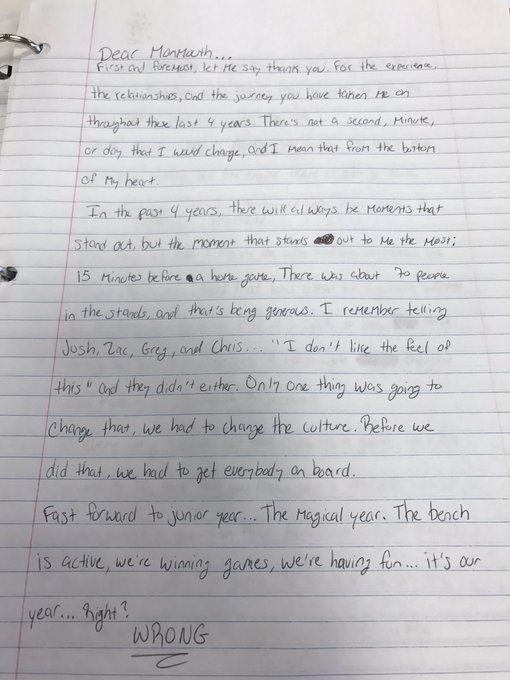 Dear Monmouth...
First and foremost, let me say thank you. For the experience,
the relationships, and the journey you have taken me on
throughout these last 4 years. There's not a second, minute,
or day that I would change, and I mean that from the bottom
of my heart.
In the past 4 years, there will always be moments that
stand out, but the moment that stands out to me the most;
15 minutes before a home game, There was about 70 people
in the stands, and that's being generous. I remember telling
Josh, Zac, Greg, and Chris... "I don't like the feel of
this" and they didn't either. Only one thing was going to
change that, we had to change the culture. Before we
did that, we had to get everybody on board.
Fast forward to junior year... The magical year. The bench
is active, we're winning games, we're having fun... it's our
year... Right?
WRONG